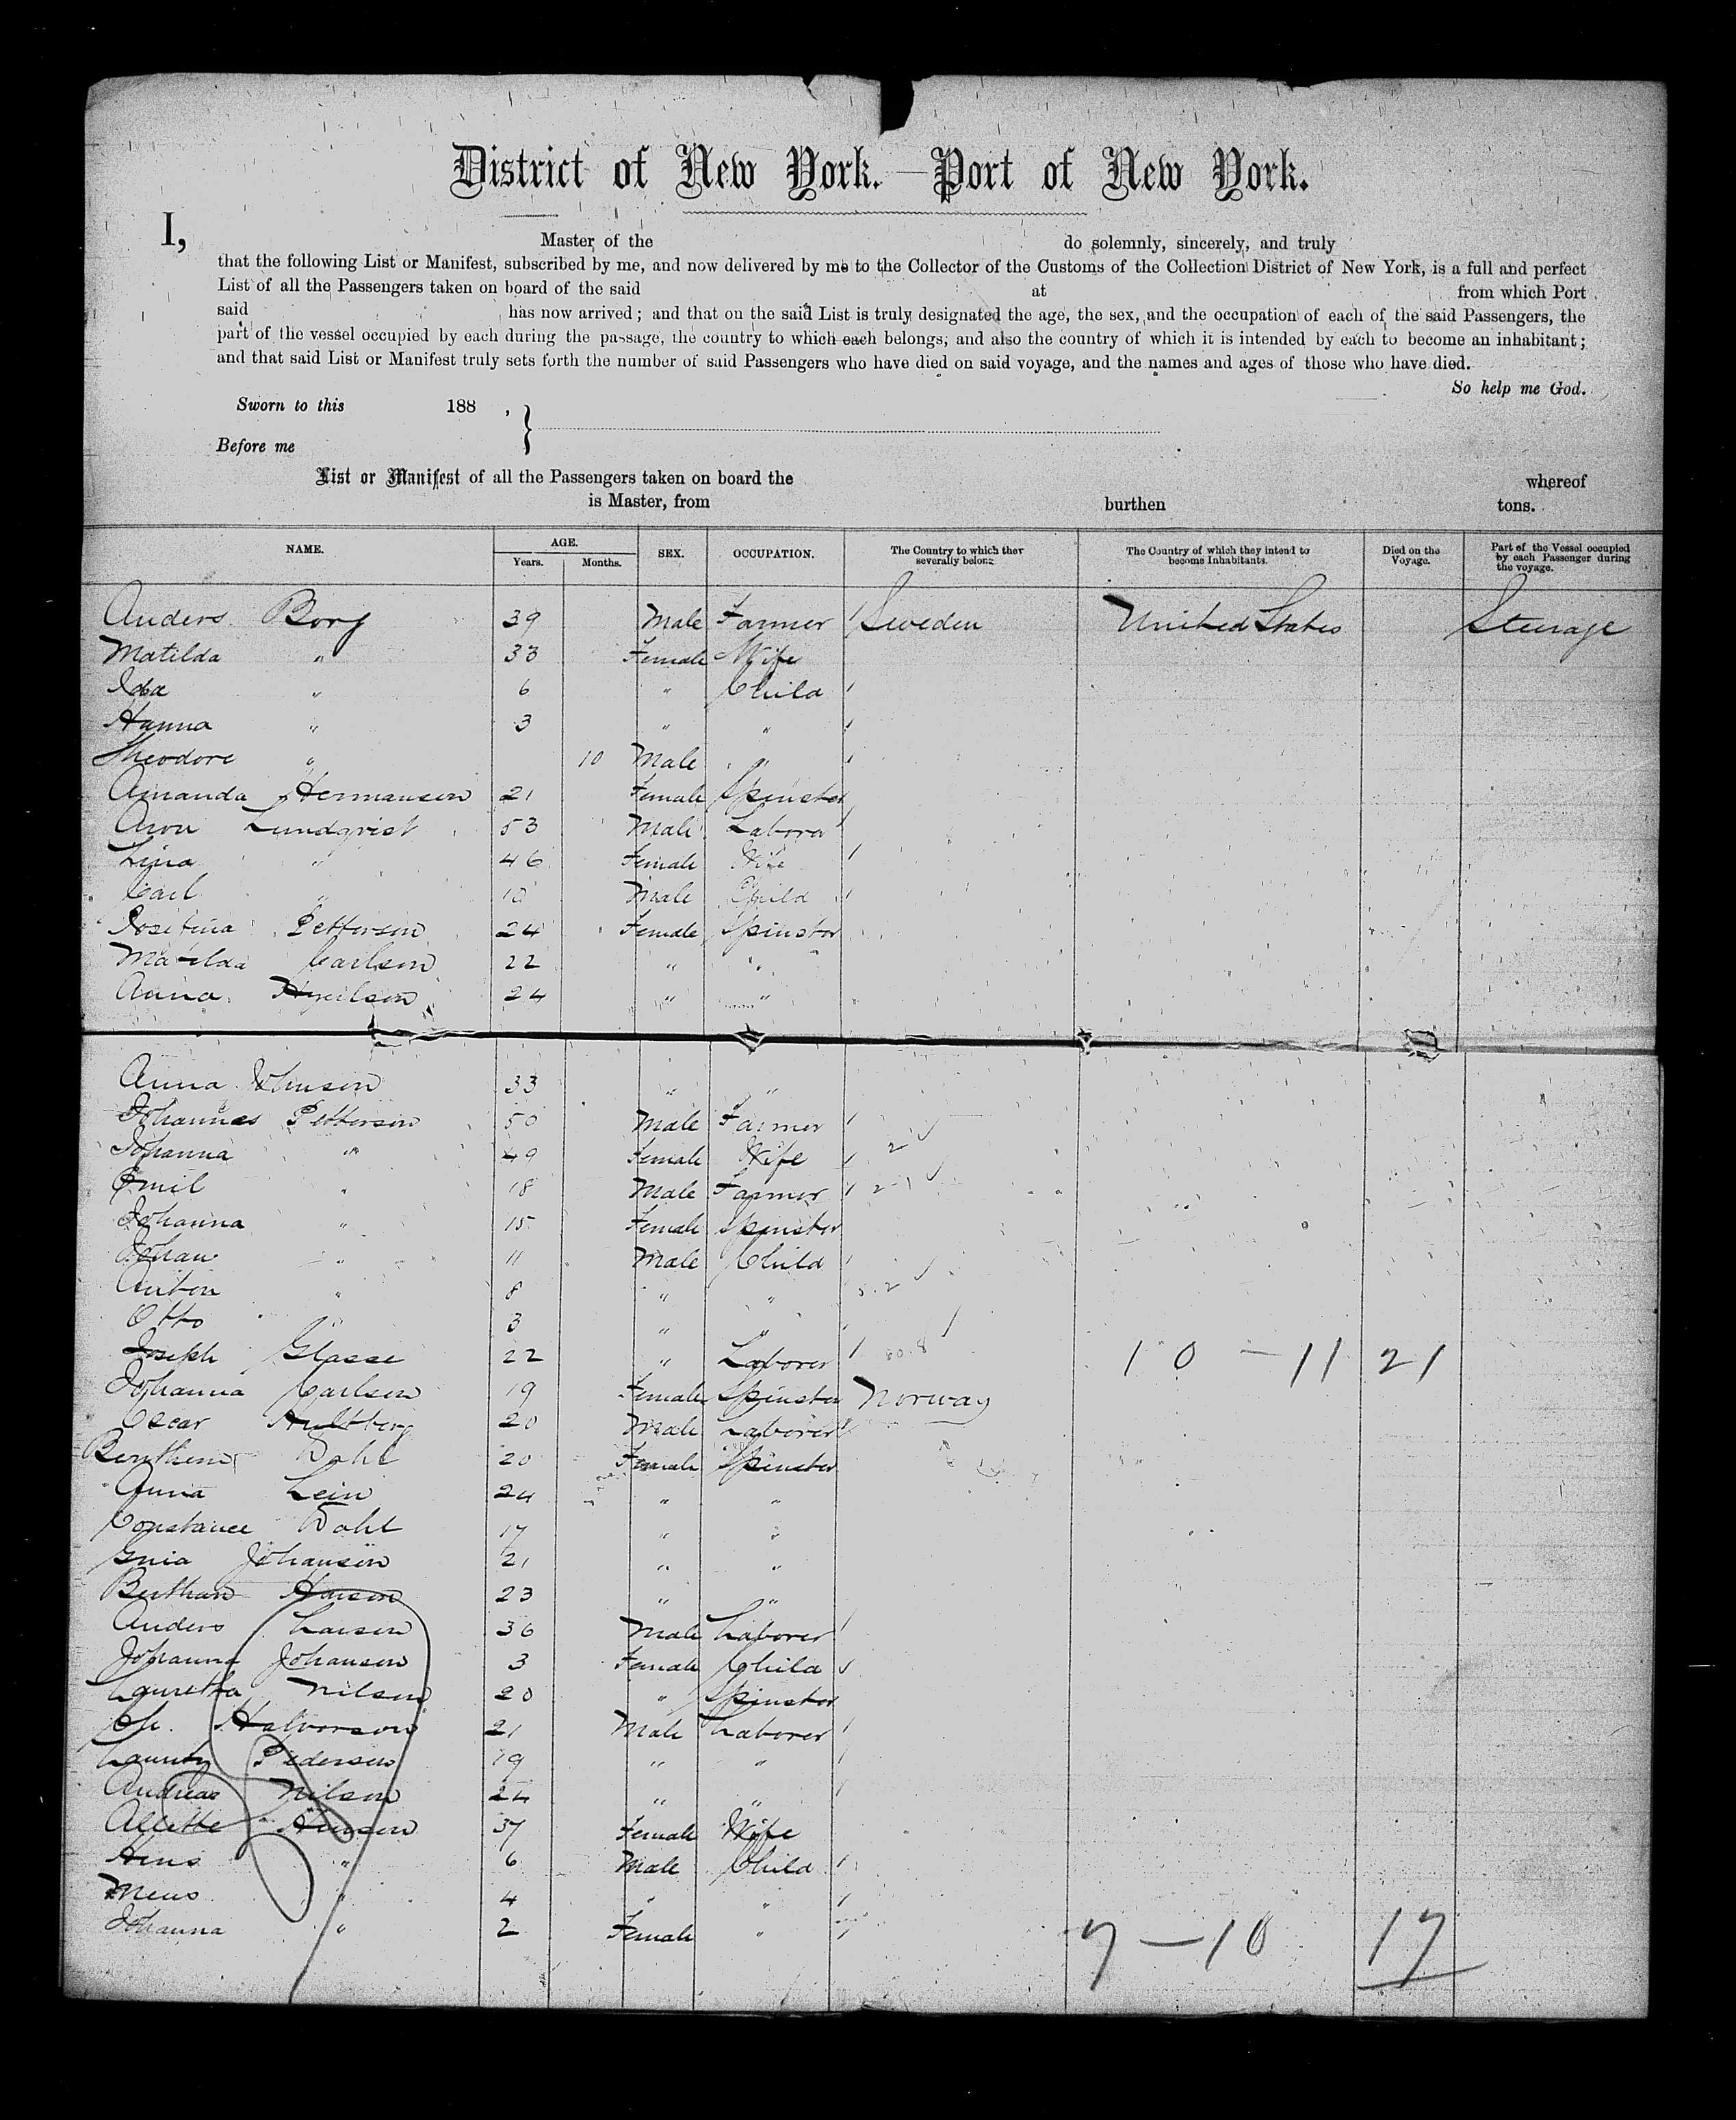 District of New York.—Port of New York.
I, Master of the do solemnly, sincerely, and truly
that the following List or Manifest, subscribed by me, and now delivered by me to the Collector of the Customs of the Collection District of New York, is a full and perfect
List of all the Passengers taken on board of the said at from which Port
said has now arrived; and that on the said List is truly designated the age, the sex, and the occupation of each of the said Passengers, the
part of the vessel occupied by each during the passage, the country to which each belongs, and also the country of which it is intended by each to become an inhabitant;
and that said List or Manifest truly sets forth the number of said Passengers who have died on said voyage, and the names and ages of those who have died.
So help me God.
Sworn to this 188 ,
Before me
List or Manifest of all the Passengers taken on board the whereof
is Master, from burthen tons.
NAME. AGE. Years. Months. SEX. OCCUPATION. The Country to which they severally belong. The Country of which they intend to become Inhabitants. Died on the Voyage. Part of the Vessel occupied by each Passenger during the voyage.
Anders Borg 39 Male Farmer Sweden United States Steerage
Matilda " 33 Female Wife
Ida " 6 " Child
Hanna " 3 " "
Theodore " 10 Male "
Amanda Hermanson 21 Female Spinster
Aron Lundqvist 53 Male Laborer
Lina " 46 Female Wife
Carl " 10 Male Child
Josefina Petterson 24 Female Spinster
Matilda Carlson 22 " "
Anna 24 " "
Anna Johnson 33 " "
Johannes Petterson 50 Male Farmer
Johanna " 49 Female Wife
Emil " 18 Male Farmer
Johanna " 15 Female Spinster
Johan " 11 Male Child
Anton " 8 " "
Otto " 3 " "
Joseph Glasse 22 " Laborer 10 — 11 21
Johanna Carlson 19 Female Spinster Norway
Oscar Hultberg 20 Male Laborer
Dahl 20 Female Spinster
Anna Lein 24 " "
Constance Dahl 17 " "
Johanson 21 " "
23 " "
Anders Larsen 36 Male Laborer
Johanna Johansen 3 Female Child
Lauretha Nilsen 20 " Spinster
Halvorson 21 Male Laborer
Pedersen 19 " "
Andreas Nilson 24 " "
Allette Hanson 37 Female Wife
Hans " 6 Male Child
Mens " 4 " "
Johanna " 2 Female " 7 — 10 17